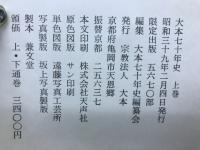 大本七十年史 上巻
昭和三十九年二月四日発行
限定出版 五六七〇部
編集 大本七十年史編纂会
発行 宗教法人 大本
京都府亀岡市天恩郷
振替京都 二五七三七
本文印刷 株式会社天声社
原色図版 サン印刷
単色図版 遠藤写真工芸所
写真製版 坂上写真製版
製本 兼文堂
頒価 上・下通巻 三四〇〇円